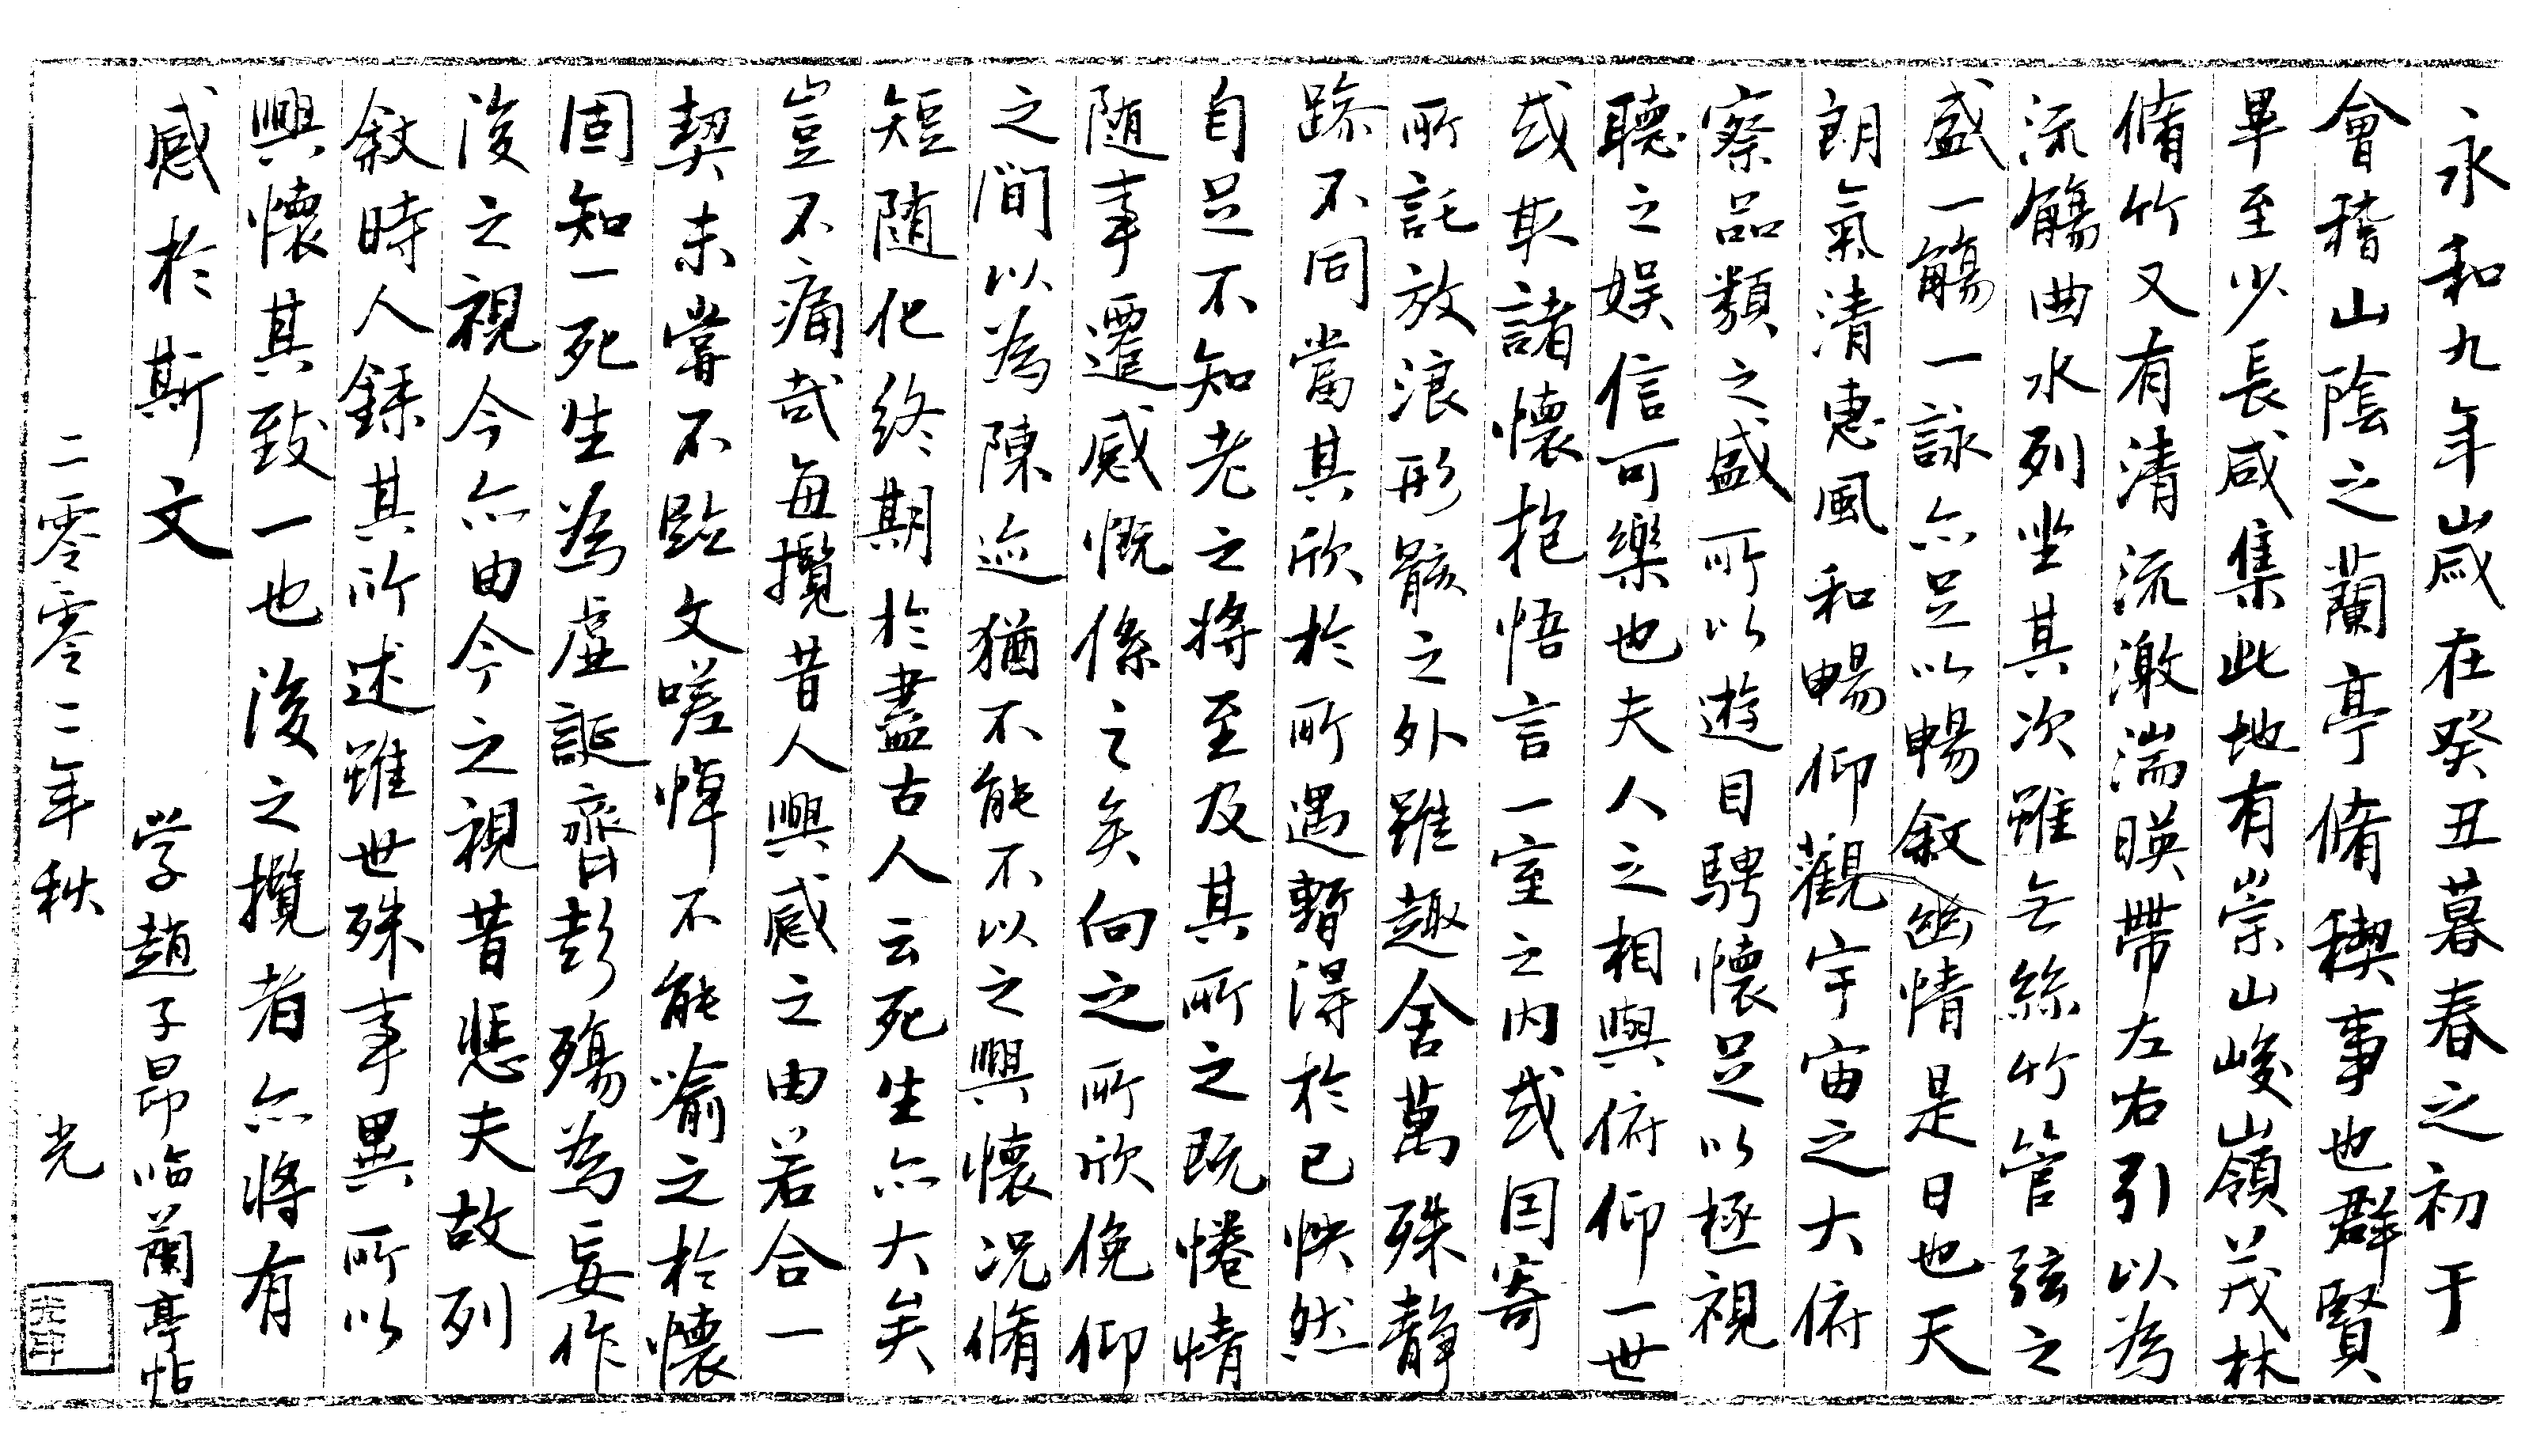 永和九年歲在癸丑暮春之初于
會稽山陰之蘭亭脩稧事也群賢
畢至少長咸集此地有崇山峻嶺茂林
脩竹又有清流激湍暎帶左右引以為
流觴曲水列坐其次雖無絲竹管弦之
盛一觴一詠亦足以暢敘幽情是日也天
朗氣清惠風和暢仰觀宇宙之大俯
察品類之盛所以遊目騁懷足以極視
聽之娛信可樂也夫人之相與俯仰一世
或取諸懷抱悟言一室之內或因寄
所託放浪形骸之外雖趣舍萬殊靜
躁不同當其欣於所遇暫得於己怏然
自足不知老之將至及其所之既惓情
隨事遷感慨係之矣向之所欣俛仰
之間以為陳迹猶不能不以之興懷況脩
短隨化終期於盡古人云死生亦大矣
豈不痛哉每攬昔人興感之由若合一
契未嘗不臨文嗟悼不能喻之於懷
固知一死生為虛誕齊彭殤為妄作
後之視今亦由今之視昔悲夫故列
敘時人錄其所述雖世殊事異所以
興懷其致一也後之攬者亦將有
感於斯文
学趙子昂临蘭亭帖
二零零二年秋 光